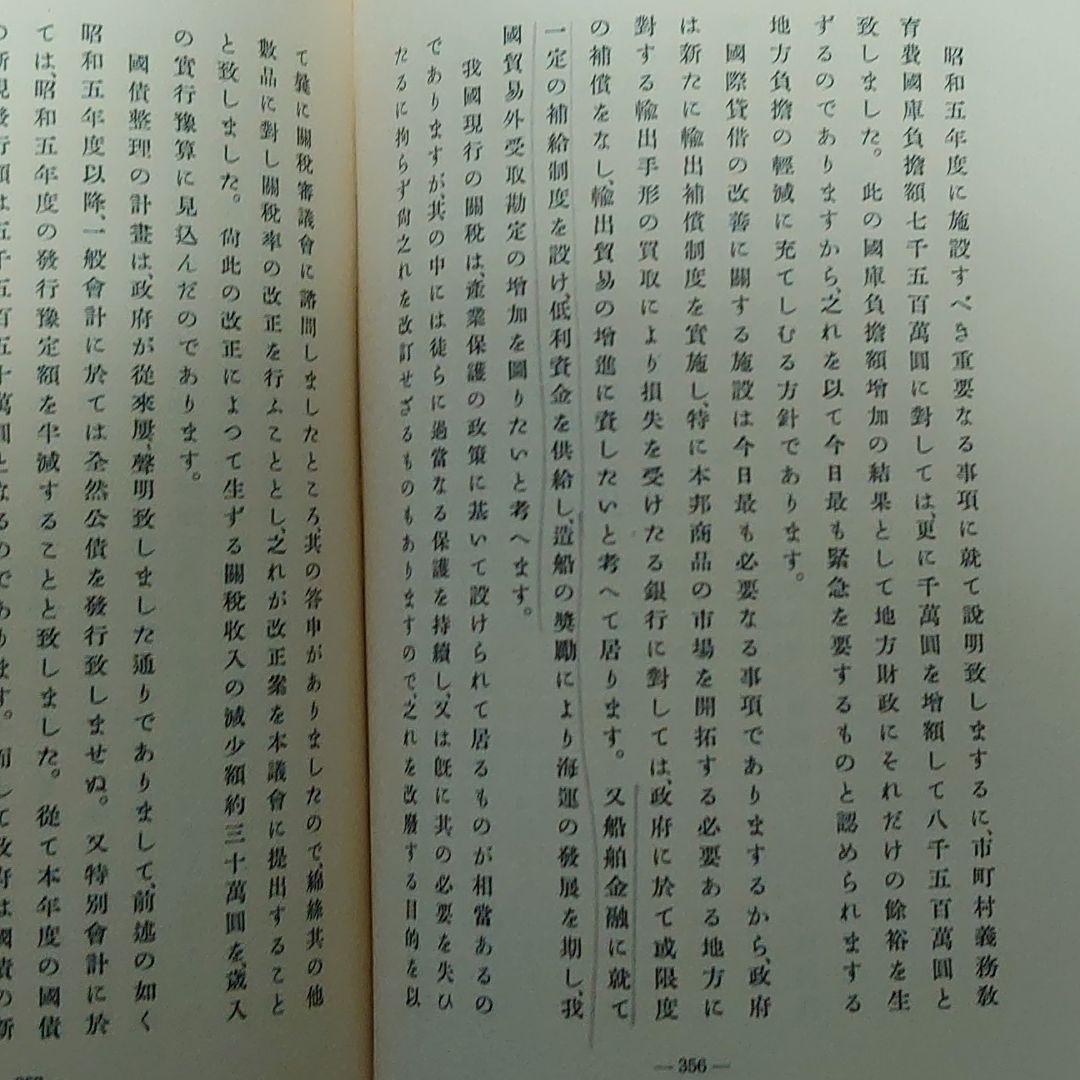 昭和五年度に施設すべき重要なる事項に就て說明致しまするに、市町村義務敎
育費國庫負擔額七千五百萬圓に對しては、更に千萬圓を增額して八千五百萬圓と
致しました。此の國庫負擔額增加の結果として地方財政にそれだけの餘裕を生
ずるのでありますから、之れを以て今日最も緊急を要するものと認められまする
地方負擔の輕減に充てしむる方針であります。
國際貸借の改善に關する施設は今日最も必要なる事項でありまするから、政府
は新たに輸出補償制度を實施し、特に本邦商品の市場を開拓する必要ある地方に
對する輸出手形の買取により損失を受けたる銀行に對しては、政府に於て或限度
の補償をなし、輸出貿易の增進に資したいと考へて居ります。又船舶金融に就て
一定の補給制度を設け、低利資金を供給し、造船の奬勵により海運の發展を期し、我
國貿易外受取勘定の增加を圖りたいと考へます。
我國現行の關稅は、產業保護の政策に基いて設けられて居るものが相當あるの
でありますが、其の中には徒らに過當なる保護を持續し、又は旣に其の必要を失ひ
たるに拘らず尙之れを改訂せざるものもありますので、之れを改廢する目的を以
― 356 ―
て曩に關稅審議會に諮問しましたところ、其の答申がありましたので、綿絲其の他
數品に對し關稅率の改正を行ふこととし、之れが改正案を本議會に提出すること
と致しました。尙此の改正によつて生ずる關稅收入の減少額約三十萬圓を、歲入
の實行豫算に見込んだのであります。
國債整理の計畫は、政府が從來屢〻聲明致しました通りでありまして、前述の如く
昭和五年度以降、一般會計に於ては全然公債を發行致しませぬ。又特別會計に於
ては、昭和五年度の發行豫定額を半減することと致しました。從て本年度の國債
の新規發行額は五千五百五十萬圓となるのであります。而して政府は國債の新